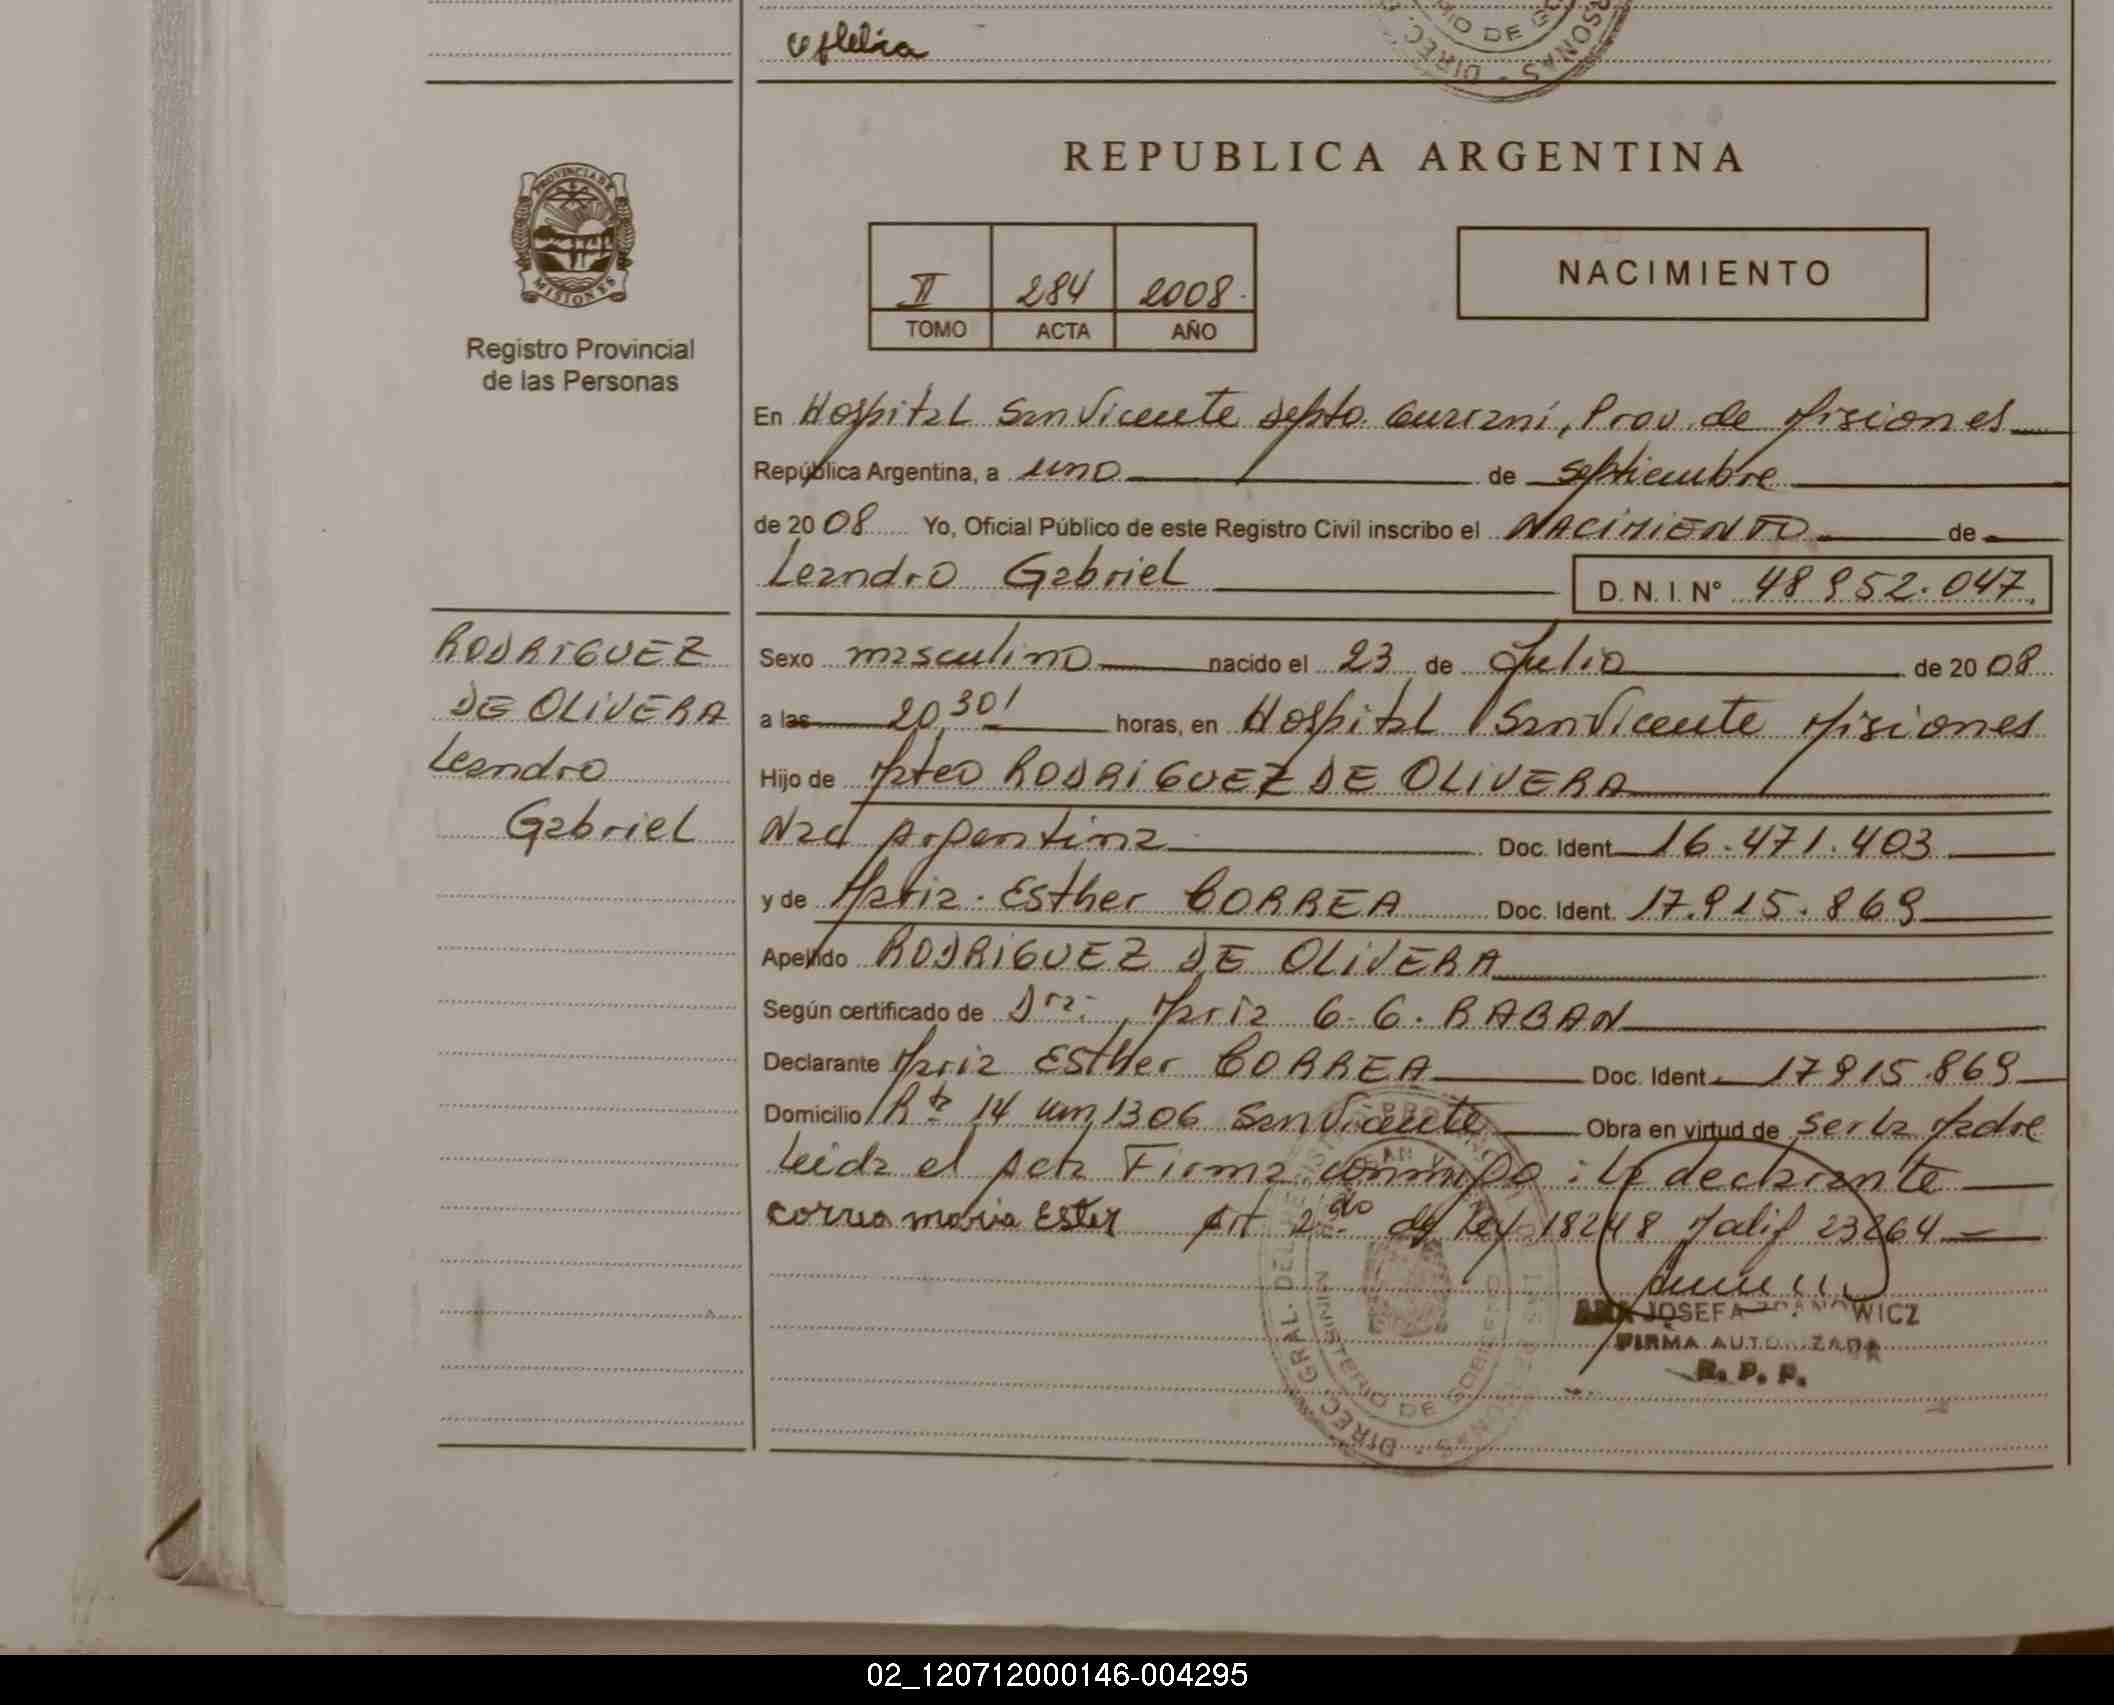 Ofelia
DIREC
RIO DE GO
RSONAS
REPUBLICA ARGENTINA
PROVINCIA DE
MISIONES
Registro Provincial
de las Personas
II 284 2008.
TOMO ACTA AÑO
NACIMIENTO
En Hospital San Vicente Depto. Guarani, Prov. de Misiones
República Argentina, a uno de septiembre
de 2008 Yo, Oficial Público de este Registro Civil inscribo el NACIMIENTO de
Leandro Gabriel D. N. I. Nº 48952.047
RODRIGUEZ
DE OLIVERA
Leandro
Gabriel
Sexo masculino nacido el 23 de Julio de 2008
a las 20,30' horas, en Hospital San Vicente Misiones
Hijo de Mateo RODRIGUEZ DE OLIVERA
Nac Argentina Doc. Ident 16.471.403
y de Maria Esther CORREA Doc. Ident. 17.915.869
Apellido RODRIGUEZ DE OLIVERA
Según certificado de Dra. Maria G. G. RABAN
Declarante Maria Esther CORREA Doc. Ident. 17915.869
Domicilio Rta 14 km 1306 San Vicente Obra en virtud de ser la Madre
Leida el Acta Firma conmigo: la declarante
correa maria Ester Art 2do de Ley 18248 Modif 23264
ANA JOSEFA ZDANOWICZ
FIRMA AUTORIZADA
R. P. P.
DIREC. GRAL. DEL
MINISTERIO DE GOBIERNO
02_120712000146-004295